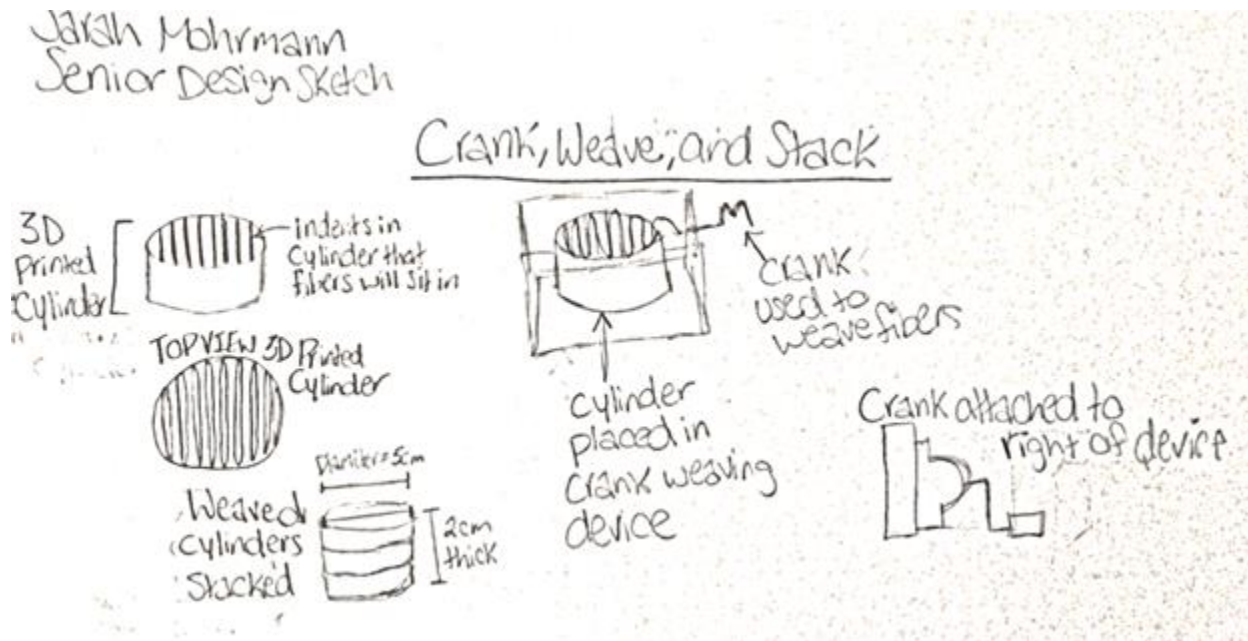 Jarah Mohrmann
Senior Design Sketch
Crank, Weave, and Stack
3D
Printed
Cylinder
indents in
Cylinder that
fibers will sit in
TOPVIEW 3D Printed
Cylinder
Diameter = 5cm
Weaved
Cylinders
Stacked
2cm
thick
Crank
used to
weave fibers
Cylinder
placed in
Crank weaving
device
Crank attached to
right of device